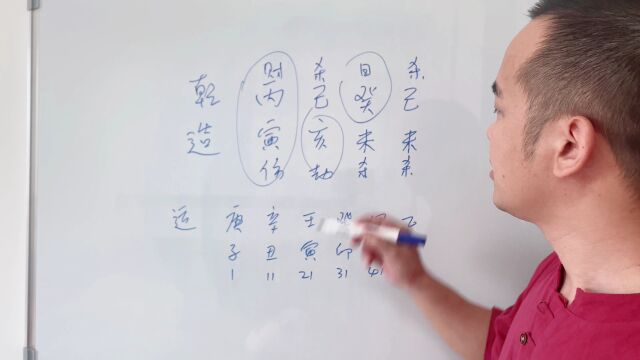 财 杀 日 杀
乾 丙 己 癸 己
造 寅 亥 未 未
伤 劫 杀 杀
运 庚 辛 壬 癸 乙
子 丑 寅 卯
1 11 21 31 41